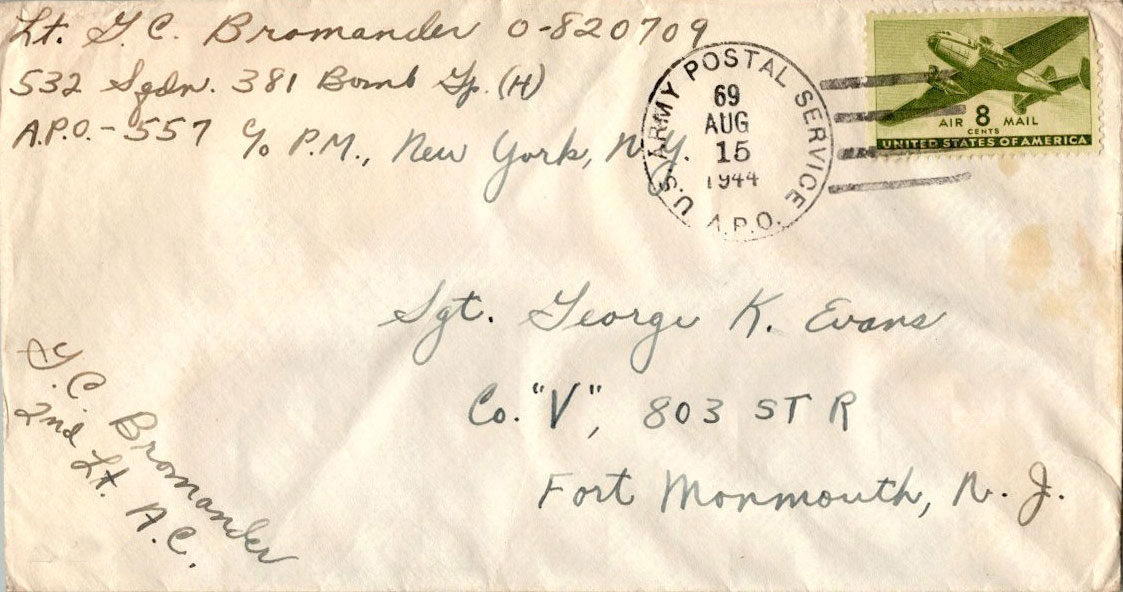 Lt. G. C. Bromander O-820709
532 Sqdn. 381 Bomb Gp. (H)
A.P.O. - 557 c/o P.M., New York, N.Y.
U.S. ARMY POSTAL SERVICE
69
AUG
15
1944
A.P.O.
AIR 8 MAIL
CENTS
UNITED STATES OF AMERICA
Sgt. George K. Evans
Co. "V", 803 STR
Fort Monmouth, N. J.
G. C. Bromander
2nd Lt. A.C.